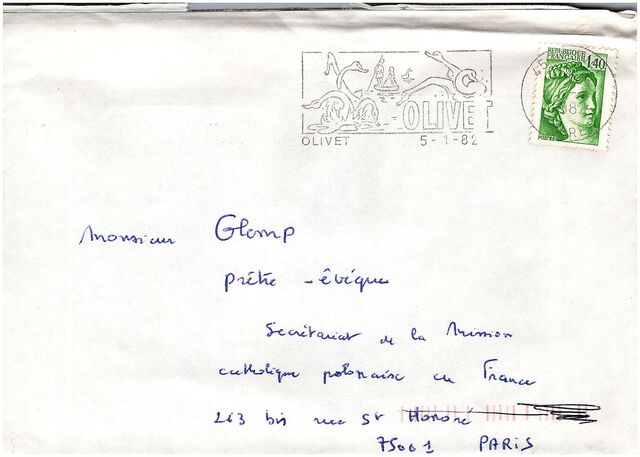 REPUBLIQUE
FRANCAISE 1,40
OLIVET
OLIVET 5-1-82
45
Monsieur Glemp
prêtre - évêque
Secrétariat de la Mission
catholique polonaise en France
263 bis rue St Honoré
75001 PARIS